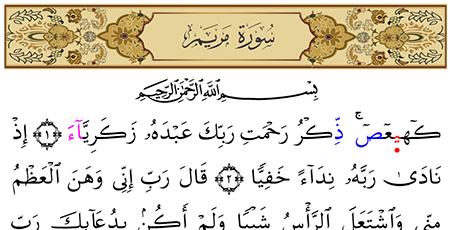 سُورَةُ مَرْيَمَ
بِسْمِ اللَّهِ الرَّحْمَٰنِ الرَّحِيمِ
كٓهيعٓصٓ ۚ ذِكْرُ رَحْمَتِ رَبِّكَ عَبْدَهُۥ زَكَرِيَّآءَ ﴿١﴾ إِذْ
نَادَىٰ رَبَّهُۥ نِدَآءً خَفِيًّا ﴿٢﴾ قَالَ رَبِّ إِنِّى وَهَنَ ٱلْعَظْمُ
مِنِّى وَٱشْتَعَلَ ٱلرَّأْسُ شَيْبًا وَلَمْ أَكُنۢ بِدُعَآئِكَ رَبِّ